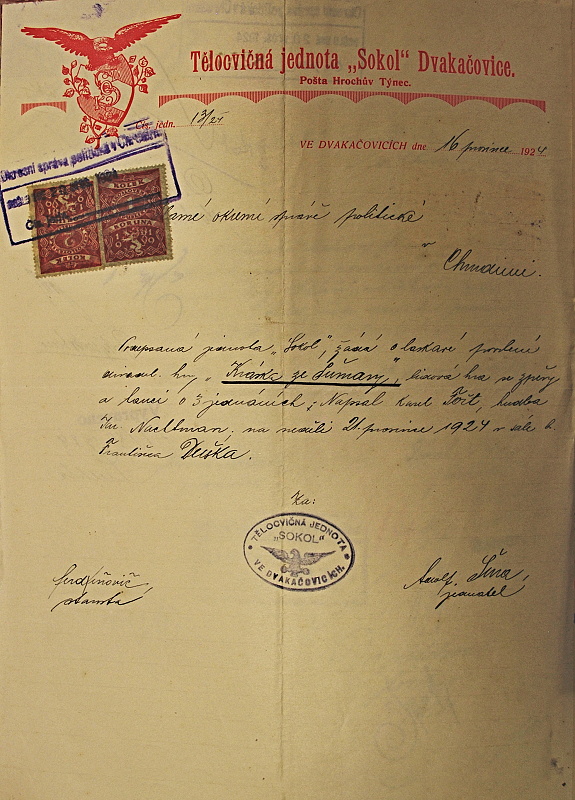 Tělocvičná jednota „Sokol" Dvakačovice.
Pošta Hrochův Týnec.
Čís. jedn. 13/24
VE DVAKAČOVICÍCH dne 16 prosince 1924
Okresní správa politická v Chrudimi
KOLEK
KORUNA
slavné okresní správě politické
v
Chrudimi.
Podepsaná jednota „Sokol", žádá o laskavé povolení
divadel. hry, „Kráska ze Šumavy," lidová hra se zpěvy
a tanci o 3 jednáních; Napsal Karel Fořt, hudba
na neděli 21. prosince 1924 v sále h.
Františka
Za:
TĚLOCVIČNÁ JEDNOTA
„SOKOL"
VE DVAKAČOVICÍCH.
starosta
Adolf
jednatel